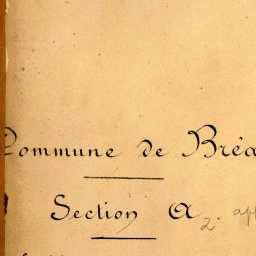 Commune de Bréa
Section A 2. app